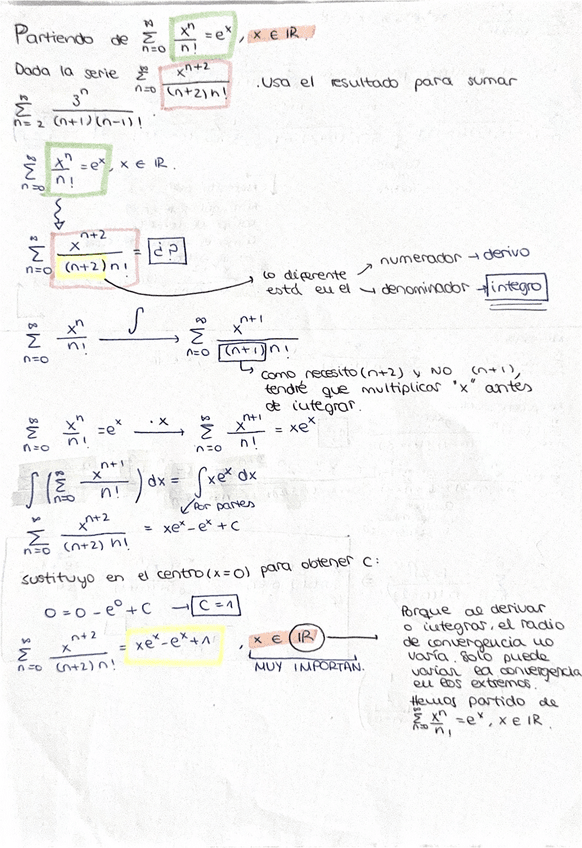 Partiendo de ∞∑n=0 xⁿ/n! = eˣ, x ∈ IR.
Dada la serie ∞∑n=0 xⁿ⁺²/(n+2)n! . Usa el resultado para sumar
∞∑n=2 3ⁿ/(n+1)(n-1)! .
∞∑n=0 xⁿ/n! = eˣ, x ∈ IR.
∞∑n=0 xⁿ⁺²/(n+2)n! = ¿?
lo diferente está en el
numerador → derivo
denominador → integro
∞∑n=0 xⁿ/n! ∫→ ∞∑n=0 xⁿ⁺¹/(n+1)n!
como necesito (n+2) y NO (n+1),
tendré que multiplicar "x" antes
de integrar.
∞∑n=0 xⁿ/n! = eˣ ·x→ ∞∑n=0 xⁿ⁺¹/n! = xeˣ
∫(∞∑n=0 xⁿ⁺¹/n!) dx = ∫xeˣ dx
Por partes
∞∑n=0 xⁿ⁺²/(n+2) n! = xeˣ-eˣ+C
sustituyo en el centro (x=0) para obtener C:
0 = 0 - e⁰ + C → C = 1
∞∑n=0 xⁿ⁺²/(n+2)n! = xeˣ-eˣ+1 , x ∈ IR
MUY IMPORTAN.
Porque al derivar
o integrar, el radio
de convergencia no
varía. Solo puede
variar la convergencia
en los extremos.
Hemos partido de
∞∑n=0 xⁿ/n! = eˣ, x ∈ IR.